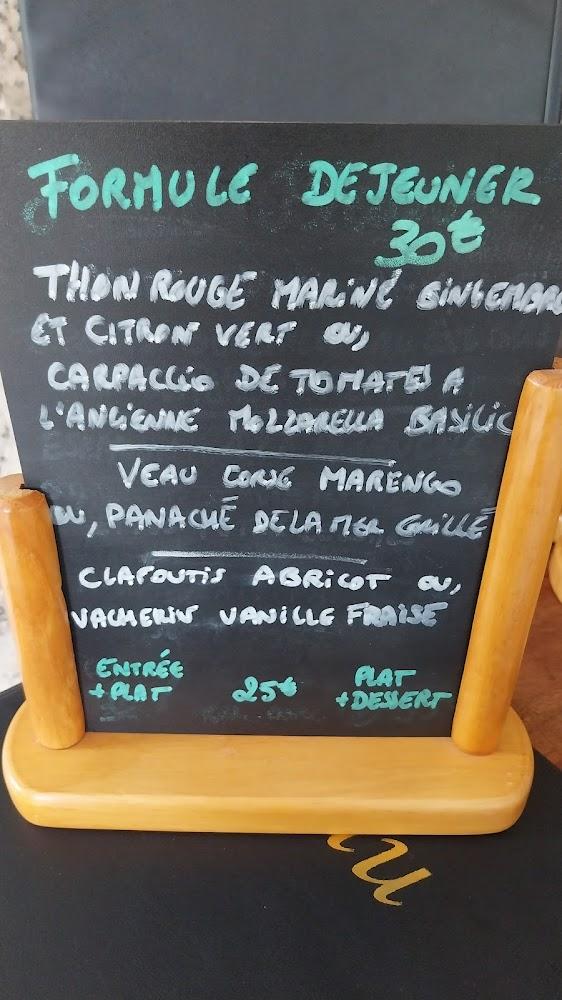 FORMULE DEJEUNER
30€
THON ROUGE MARINÉ GINGEMBRE
ET CITRON VERT OU,
CARPACCIO DE TOMATES A
L'ANCIENNE MOZZARELLA BASILIC
VEAU CORSE MARENGO
OU, PANACHÉ DE LA MER GRILLÉ
CLAFOUTIS ABRICOT OU,
VACHERIN VANILLE FRAISE
ENTRÉE + PLAT 25€ PLAT + DESSERT